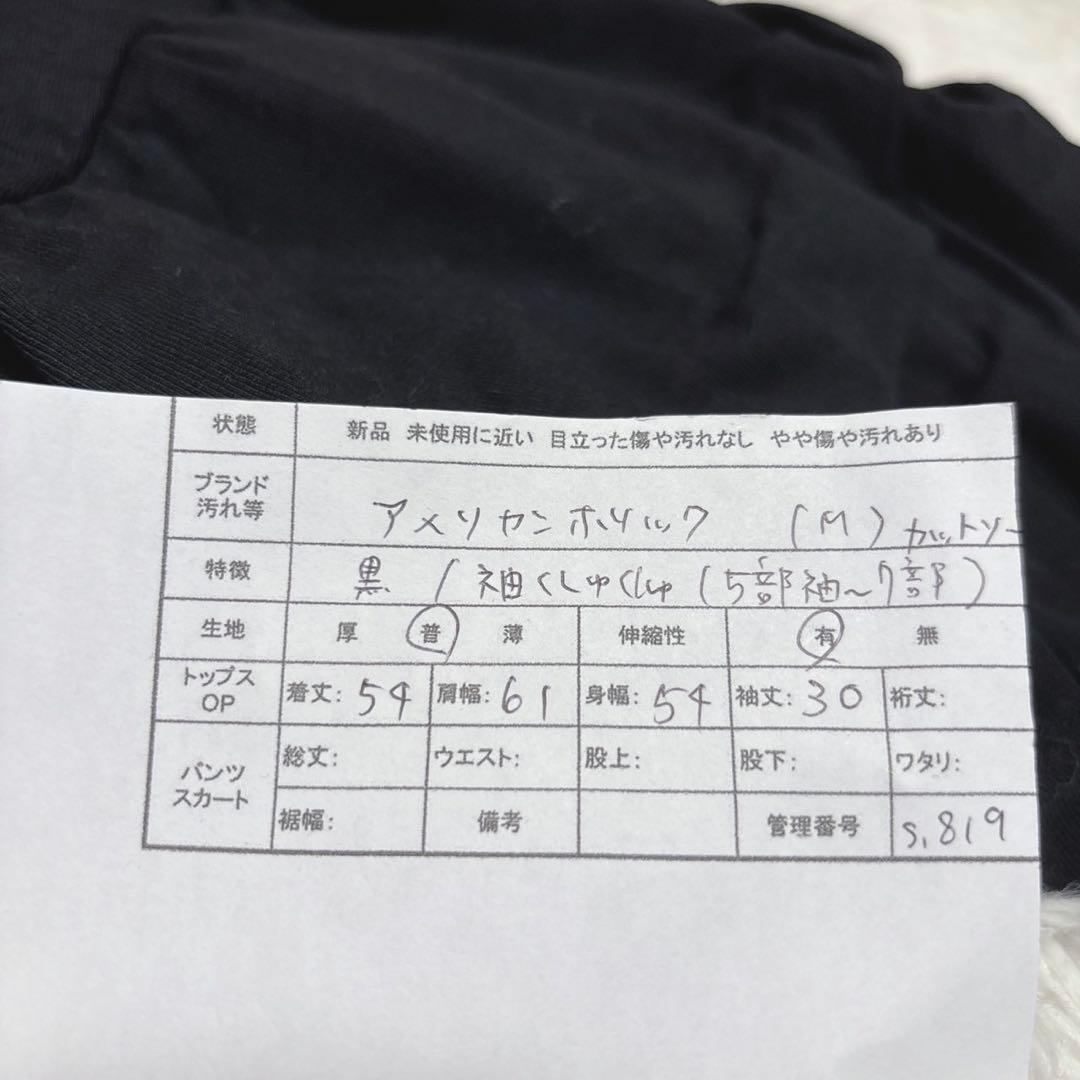 状態 新品 未使用に近い 目立った傷や汚れなし やや傷や汚れあり
ブランド 汚れ等 アメリカンホリック (M) カットソー
特徴 黒 / 袖くしゅくしゅ (5部袖〜7部)
生地 厚 普 薄 伸縮性 有 無
トップス OP 着丈: 54 肩幅: 61 身幅: 54 袖丈: 30 裄丈:
パンツ スカート 総丈: ウエスト: 股上: 股下: ワタリ:
裾幅: 備考 管理番号 S.819